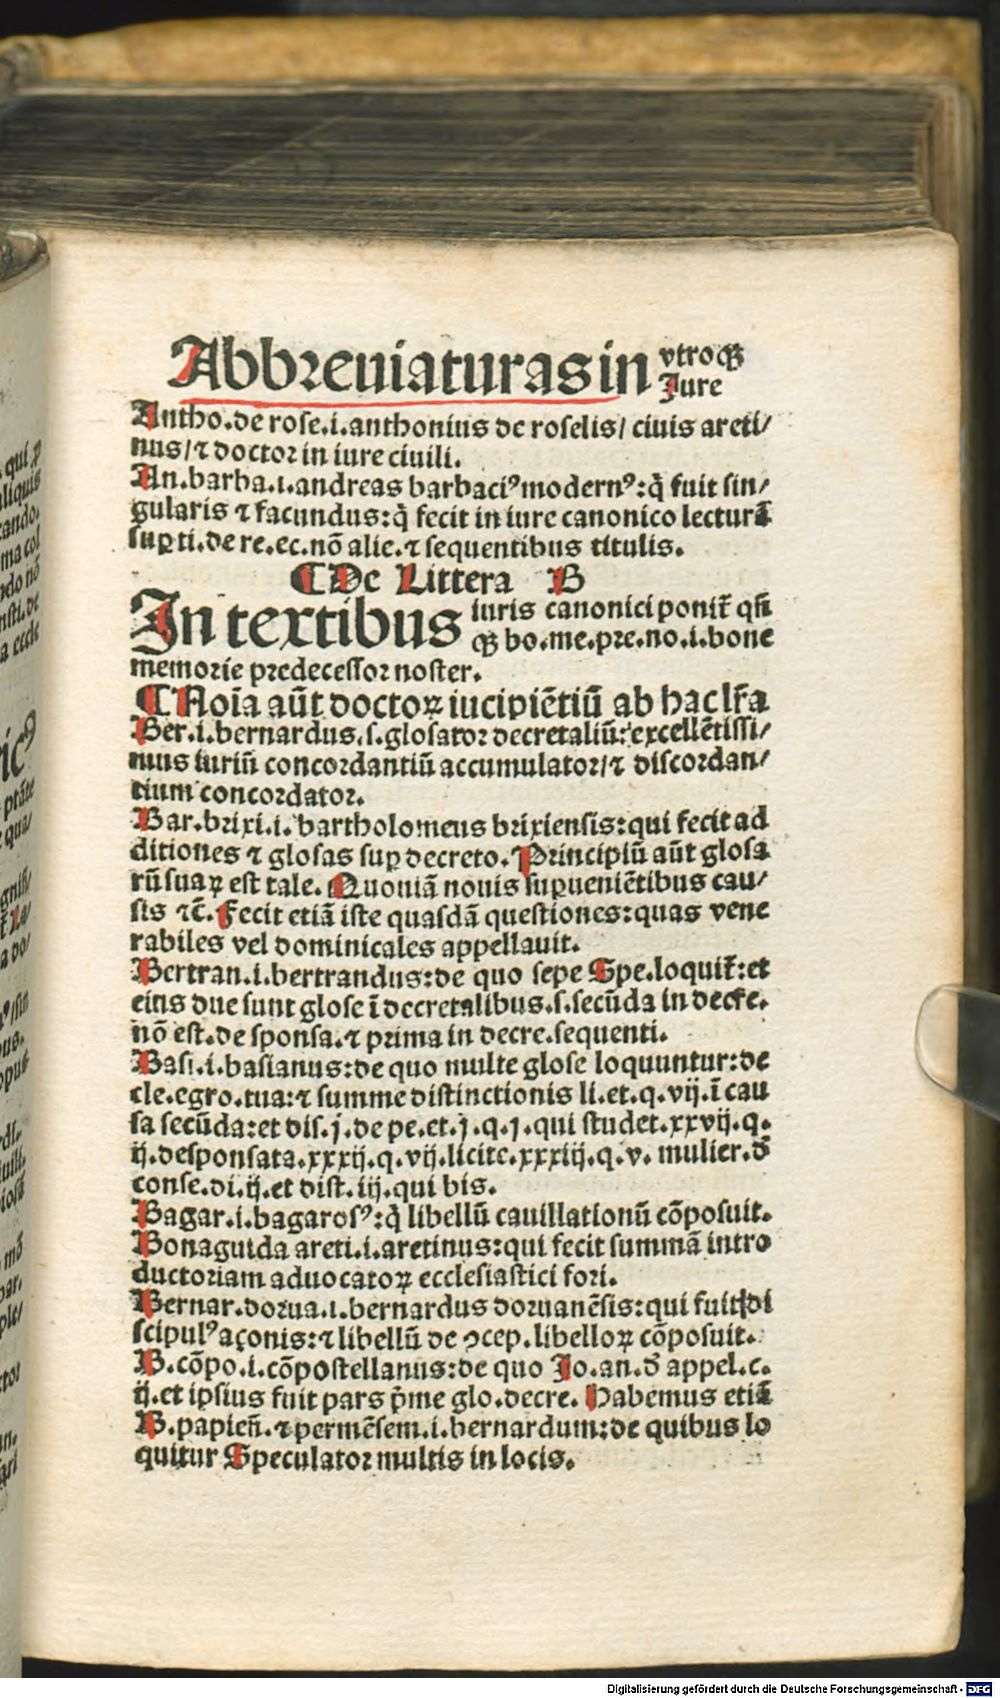 Abbreuiaturas in vtroqꝫ Jure
Antho.de rose.i.anthonius de roselis/ ciuis areti/
nus/ ⁊ doctor in iure ciuili.
An.barba.i.andreas barbaciꝰ modernꝰ:q̄ fuit sin/
gularis ⁊ facundus:q̄ fecit in iure canonico lecturā
suꝑ ti.de re.ec.nō alie.⁊ sequentibus titulis.
¶ De Littera B
In textibus iuris canonici ponit̄ qn̄
qꝫ bo.me.pre.no.i.bone
memorie predecessor noster.
¶ Noīa aūt doctoꝝ iucipiētiū ab hac lr̄a
Ber.i.bernardus.s.glosator decretaliū:excellētissi/
mus iuriū concordantiū accumulator/⁊ discordan/
tium concordator.
Bar.brixi.i.bartholomeus brixiensis:qui fecit ad
ditiones ⁊ glosas suꝑ decreto.Principiū aūt glosa
rū suaꝝ est tale.Quoniā nouis suꝑueniētibus cau/
sis ⁊c̄.Fecit etiā iste quasdā questiones:quas vene
rabiles vel dominicales appellauit.
Bertran.i.bertrandus:de quo sepe Spe.loquit̄:et
eius due sunt glose ī decretalibus.s.secūda in decre.
nō est.de sponsa.⁊ prima in decre.sequenti.
Basi.i.basianus:de quo multe glose loquuntur:de
cle.egro.tua:⁊ summe distinctionis li.et.q.vij.ī cau
sa secūda:et dis.j.de pe.et.j.q.j.qui studet.xxvij.q.
ij.desponsata.xxxij.q.vij.licite.xxxiij.q.v. mulier.đ
conse.di.ij.et dist.iij.qui bis.
Bagar.i.bagarosꝰ:q̄ libellū cauillationū cōposuit.
Bonaguida areti.i.aretinus:qui fecit summā intro
ductoriam aduocatoꝝ ecclesiastici fori.
Bernar.dorua.i.bernardus doruanēsis:qui fuit di
scipulꝰ açonis:⁊ libellū de ꝯcep.libelloꝝ cōposuit.
B.cōpo.i.cōpostellanus:de quo Jo.an.đ appel.c.
ij.et ipsius fuit pars p̄me glo.decre. Habemus etiā
B.papien̄.⁊ permēsem.i.bernardum:de quibus lo
quitur Speculator multis in locis.
Digitalisierung gefördert durch die Deutsche Forschungsgemeinschaft - DFG